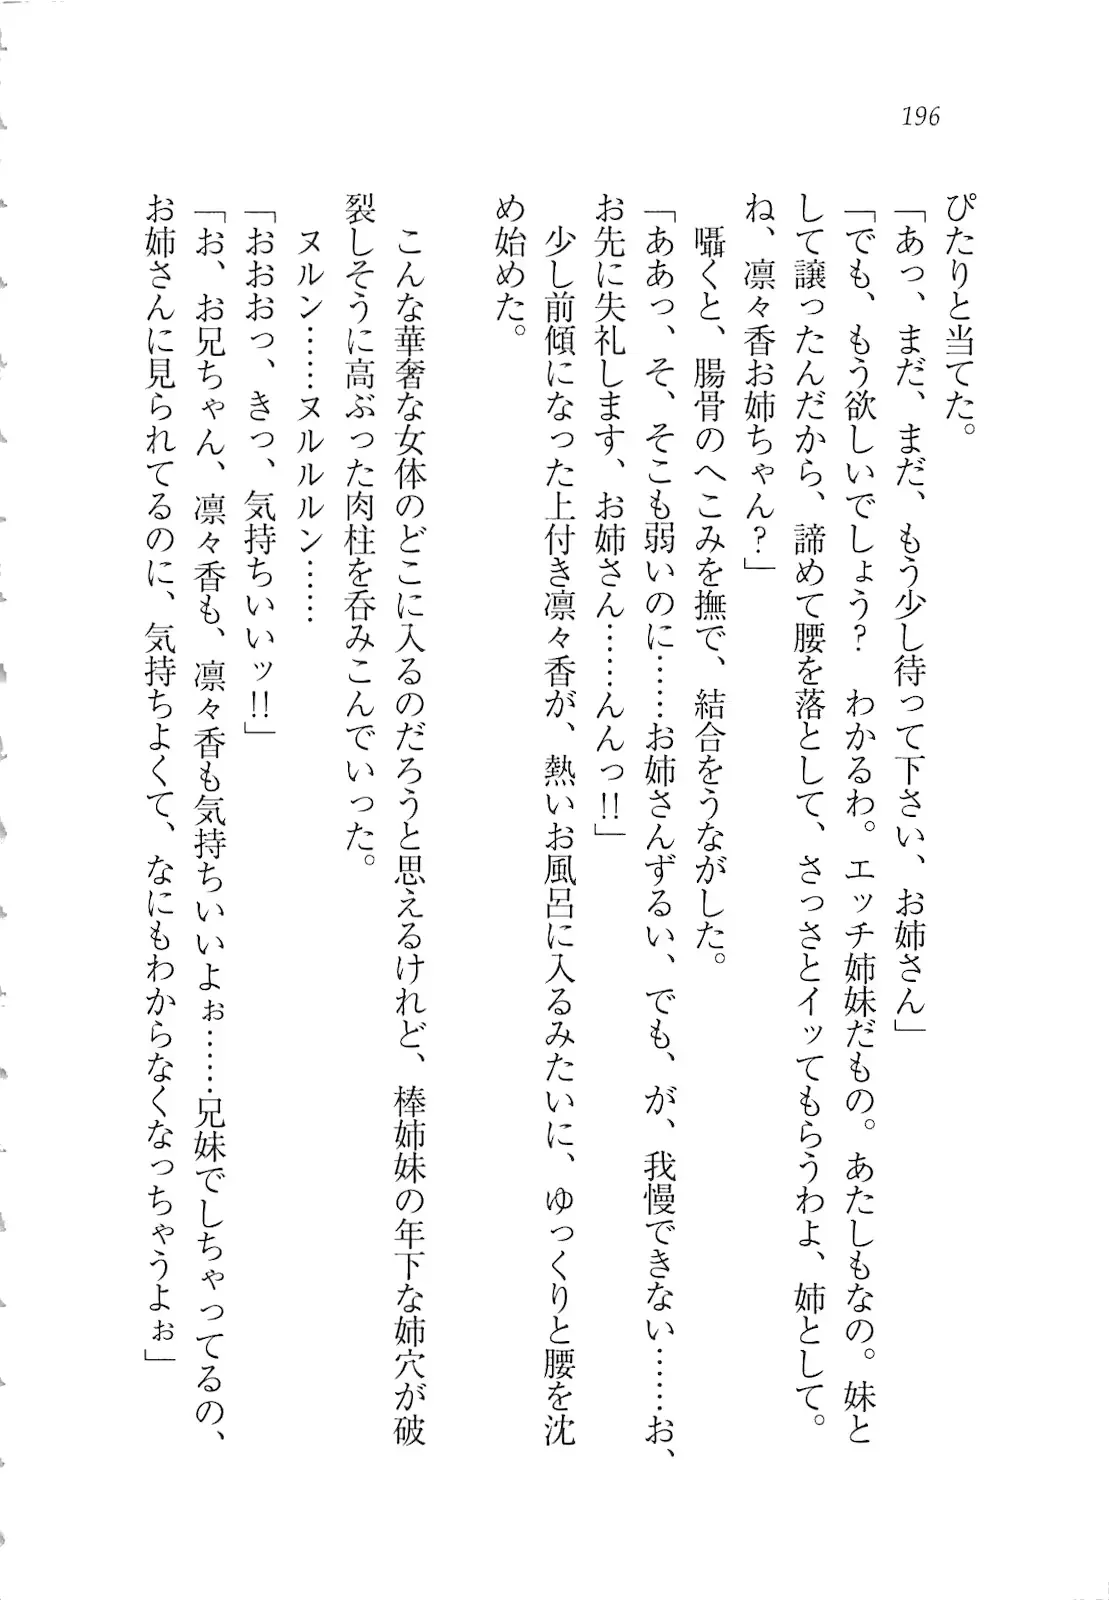 196
ぴたりと当てた。
「あっ、まだ、まだ、もう少し待って下さい、お姉さん」
「でも、もう欲しいでしょう？　わかるわ。エッチ姉妹だもの。あたしもなの。妹と
して譲ったんだから、諦めて腰を落として、さっさとイッてもらうわよ、姉として。
ね、凛々香お姉ちゃん？」
　囁くと、腸骨のへこみを撫で、結合をうながした。
「ああっ、そ、そこも弱いのに……お姉さんずるい、でも、が、我慢できない……お、
お先に失礼します、お姉さん……んんっ!!」
　少し前傾になった上付き凛々香が、熱いお風呂に入るみたいに、ゆっくりと腰を沈
め始めた。
　こんな華奢な女体のどこに入るのだろうと思えるけれど、棒姉妹の年下な姉穴が破
裂しそうに高ぶった肉柱を呑みこんでいった。
　ヌルン……ヌルルルン……
「おおおっ、きっ、気持ちいいッ!!」
「お、お兄ちゃん、凛々香も、凛々香も気持ちいいよぉ……兄妹でしちゃってるの、
お姉さんに見られてるのに、気持ちよくて、なにもわからなくなっちゃうよぉ」